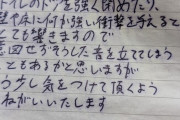 トイレのドアを強く閉めたり、
壁や床に何か強い衝撃を与えると
とても響きますので
意図せずそうした音を立ててしまう
こともあるかと思いますが
もう少し気をつけて頂くよう
お願いいたします